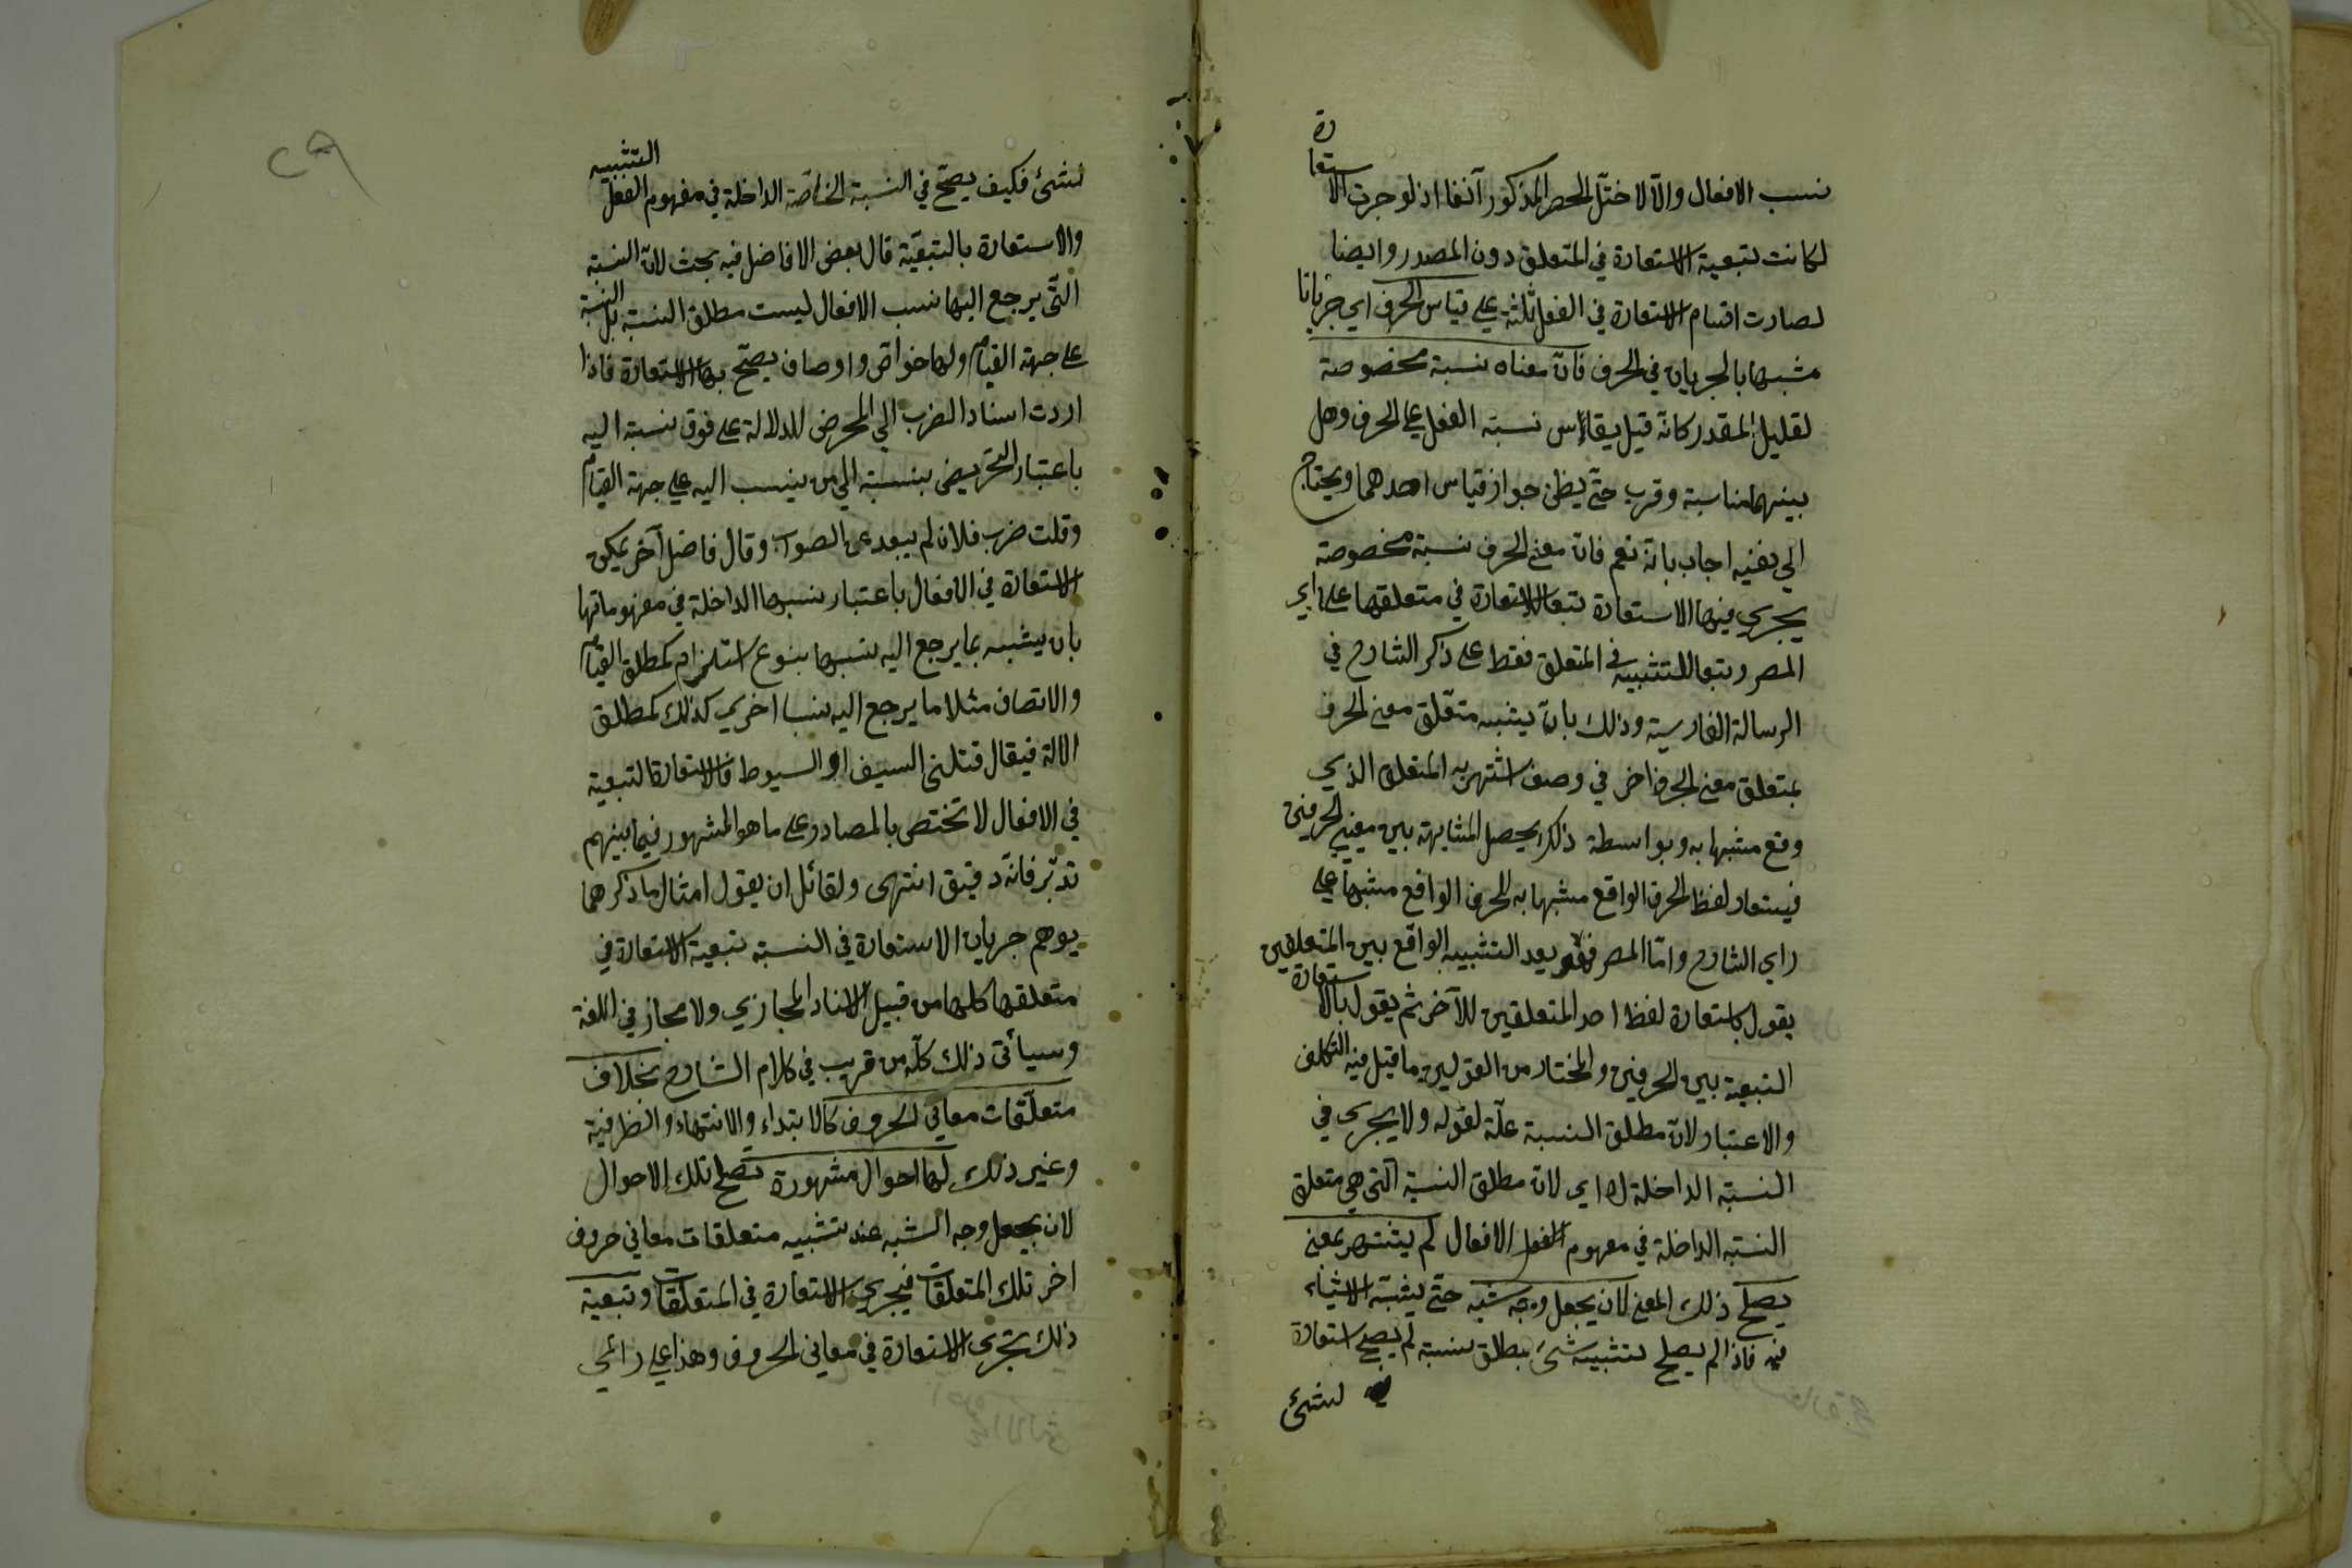 نسب الافعال والّا لاختلّ الحصر المذكور آنفا اذ لو جرت الاستعارة
لكانت بتبعية الاستعارة في المتعلق دون المصدر وايضا
لصارت اقسام الاستعارة في الفعل ثلثة على قياس الحرف اي جريانا
مشبها بالجريان في الحرف فانّ معناه نسبة مخصوصة
لقليل المقدر كانّه قيل يقاس نسبة الفعل على الحرف وهل
بينهما مناسبة وقرب حتّى يظن جواز قياس احدهما ويحتاج
الي نفيه اجاب بانّه نعم فانّ معنى الحرف نسبة مخصوصة
يجري فيها الاستعارة تبعا للاستعارة في متعلقها على راي
المصر وتبعا للتشبيه في المتعلق فقط على ذكر الشارح في
الرسالة الفارسية وذلك بانّ يشبه متعلّق معنى الحرف
بمتعلق معنى الحرف اخر في وصف اشتهر به المتعلق الذي
وقع مشبها به وبواسطة ذلك يحصل المشابهة بين معنيي الحرفين
فيستعار لفظ الحرف الواقع مشبها به للحرف الواقع مشبها على
راي الشارح وامّا المصر فهو بعد التشبيه الواقع بين المتعلقين
يقول باستعارة لفظ احد المتعلقين للآخر ثم يقول بالاستعارة
التبعية بين الحرفين والمختار من القولين ما قيل فيه التكلف
والاعتبار لانّ مطلق النسبة علّة لقوله ولا يجري في
النسبة الداخلة اه اي لانّ مطلق النسبة الّتي هي متعلق
النسبة الداخلة في مفهوم الفعل الافعال لم يشتهر بمعنى
يصلح ذلك المعنى لان يجعل وجه شبه حتّى يشبّه الاشياء
فيه فاذا لم يصلح لتشبيه شئ بمطلق نسبة لم يصح استعارة
لشئ
٢٩
لشئ فكيف يصحّ في النسبة الخاصّة الداخلة في مفهوم الفعل التشبيه
والاستعارة بالتبعيّة قال بعض الافاضل فيه بحث لانّ النسبة
الّتي يرجع اليها نسب الافعال ليست مطلق النسبة بل النسبة
على جهة القيام ولها خواص واوصاف يصحّ بها الاستعارة فاذا
اردت اسناد الضرب الي المحرض للدلالة على فوق نسبة اليه
باعتبار التحريض بنسبة الي من ينسب اليه على جهة القيام
وقلت ضرب فلان لم يبعد عن الصواب وقال فاضل آخر يمكن
الاستعارة في الافعال باعتبار نسبها الداخلة في مفهوماتها
بان يشبه بما يرجع اليه نسبها بنوع استلزام كمطلق القيام
والاتصاف مثلا ما يرجع اليه نسبا اخري كذلك كمطلق
الالة فيقال قتلني السيف او السيوط فالاستعارة التبعية
في الافعال لا تختص بالمصادر على ما هو المشهور فيما بينهم
تدبّر فانّه دقيق انتهى ولقائل ان يقول امثال ما ذكرهما
يوهم جريان الاستعارة في النسبة بتبعية الاستعارة في
متعلقها كلها من قبيل الاسناد المجازي ولا مجاز في اللغة
وسيأتى ذلك كلّه من قريب في كلام الشارح بخلاف
متعلّقات معاني الحروف كالابتداء والانتهاء والظرفية
وغير ذلك لها احوال مشهورة تصلح تلك الاحوال
لان يجعل وجه الشبه عند تشبيه متعلقات معاني حروف
اخر تلك المتعلقات فيجري الاستعارة في المتعلّقات وتبعية
ذلك تجرى الاستعارة في معاني الحروف وهذا على رائي